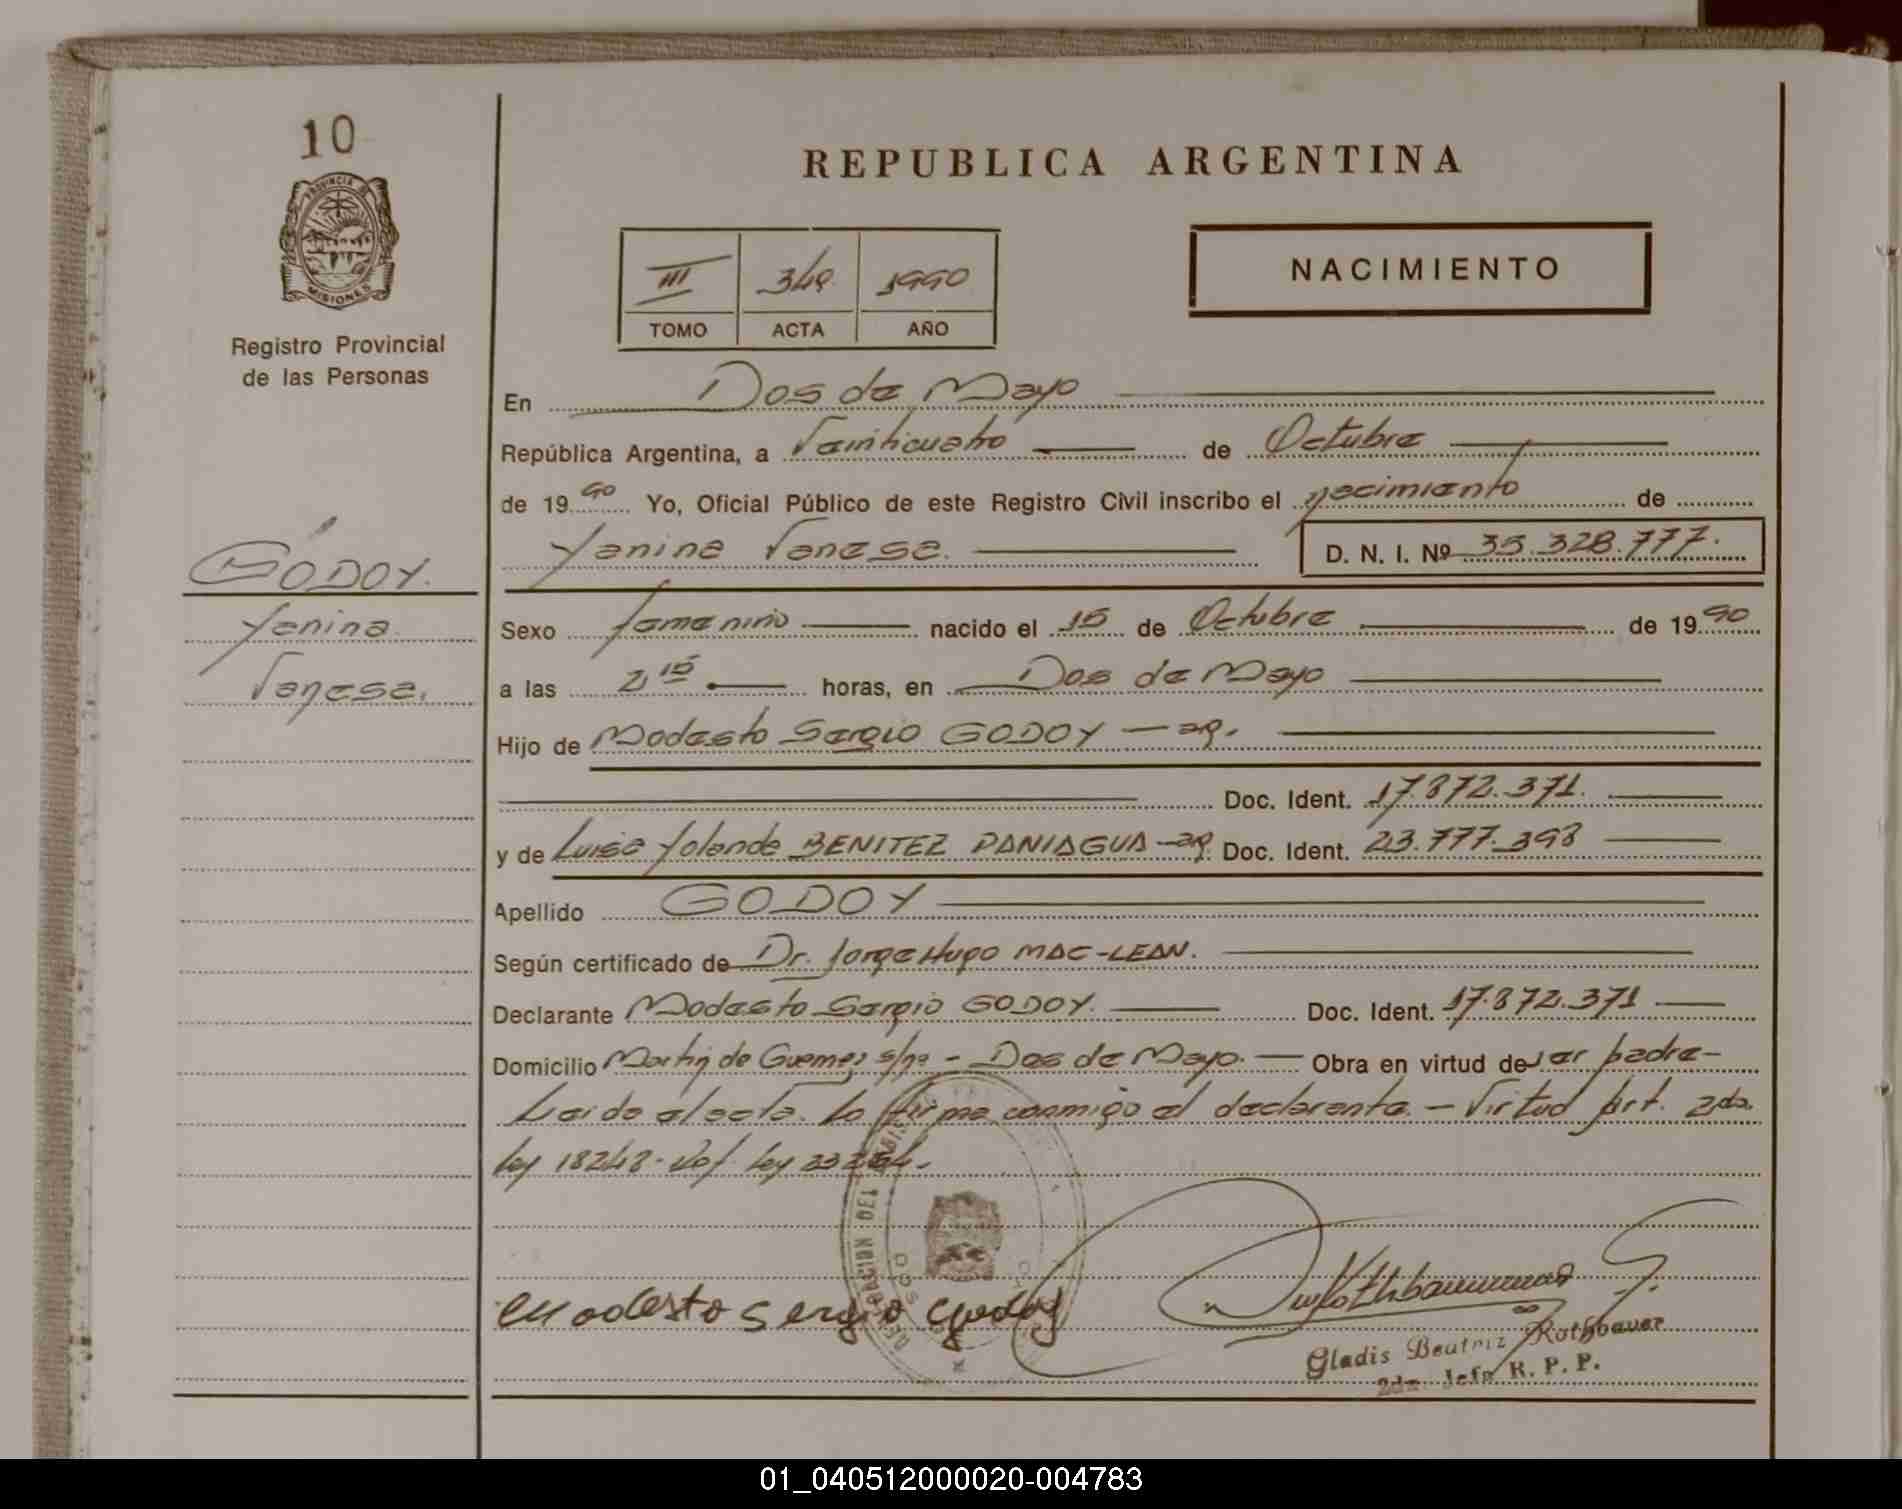 10
PROVINCIA DE
MISIONES
Registro Provincial
de las Personas
REPUBLICA ARGENTINA
NACIMIENTO
III 349 1990
TOMO ACTA AÑO
En Dos de Mayo
República Argentina, a Veinticuatro de Octubre
de 1990 Yo, Oficial Público de este Registro Civil inscribo el nacimiento de
Yanina Vanesa. D. N. I. Nº 35.328.777.
GODOY.
Yanina
Vanesa.
Sexo femenino nacido el 15 de Octubre de 1990
a las 2 15 horas, en Dos de Mayo
Hijo de Modesto Sergio GODOY - ar.
Doc. Ident. 17.872.371.
y de Luisa Yolanda BENITEZ PANIAGUA - ar. Doc. Ident. 23.777.393
Apellido GODOY
Según certificado de Dr. Jorge Hugo MAC-LEAN.
Declarante Modesto Sergio GODOY. Doc. Ident. 17.872.371
Domicilio Martin de Guemes s/nº - Dos de Mayo. - Obra en virtud de ser padre -
Leida el acta. La firma conmigo el declarante. - Virtud Art. 2do.
Ley 18248- Ley
Modesto Sergio Godoy
Gladis Beatriz Rothbauer
2da. Jefa R. P. P.
01_040512000020-004783